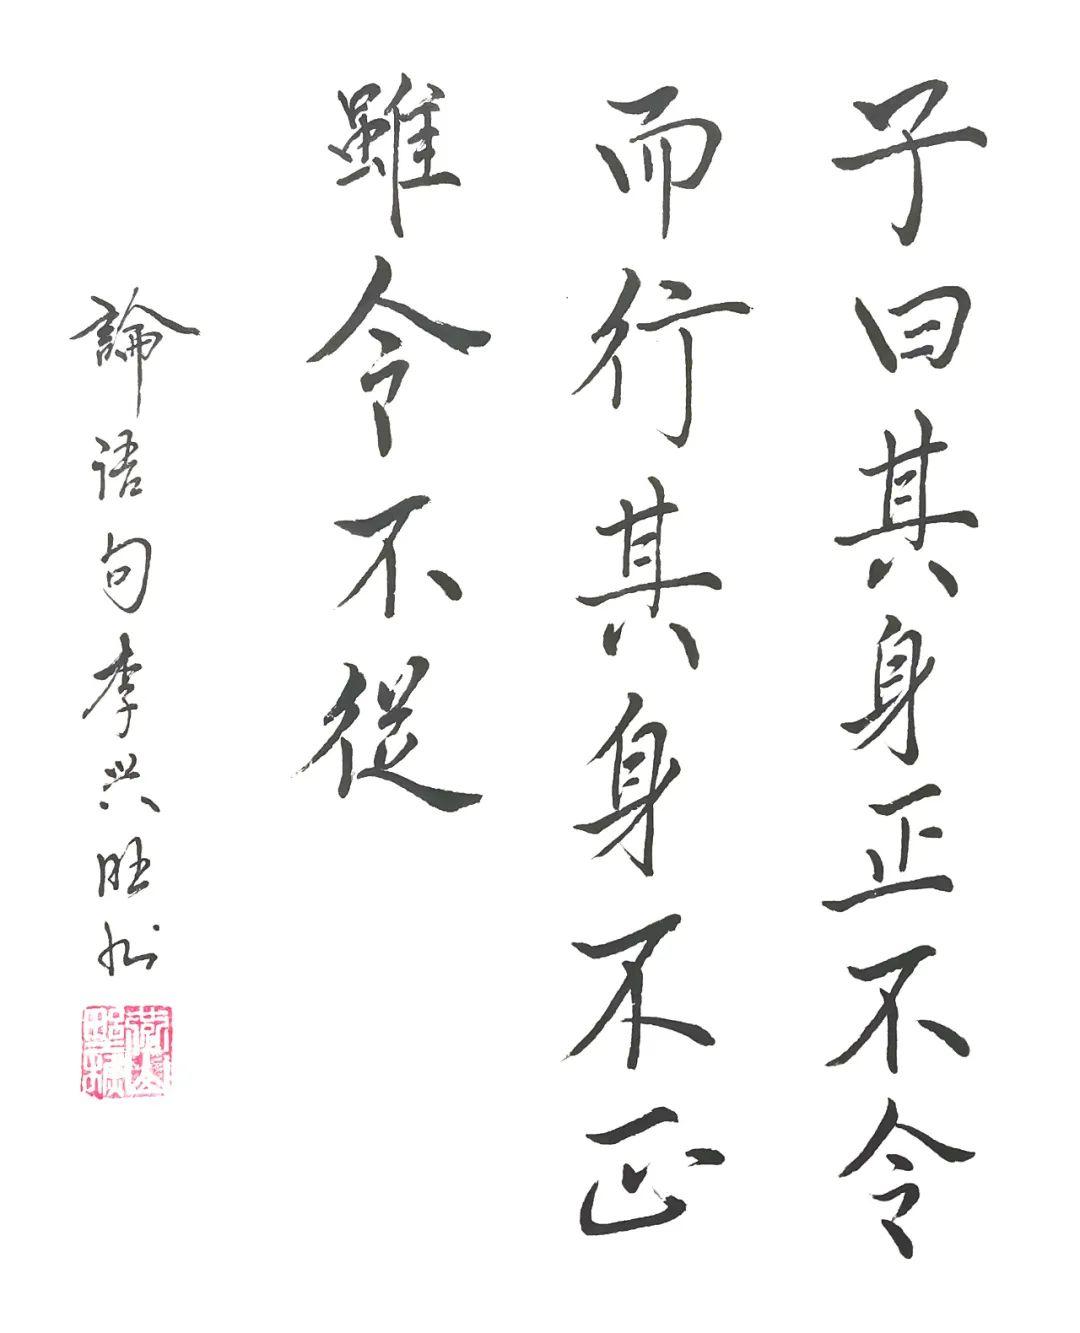 子曰其身正不令
而行其身不正
雖令不從
論语句李兴旺书